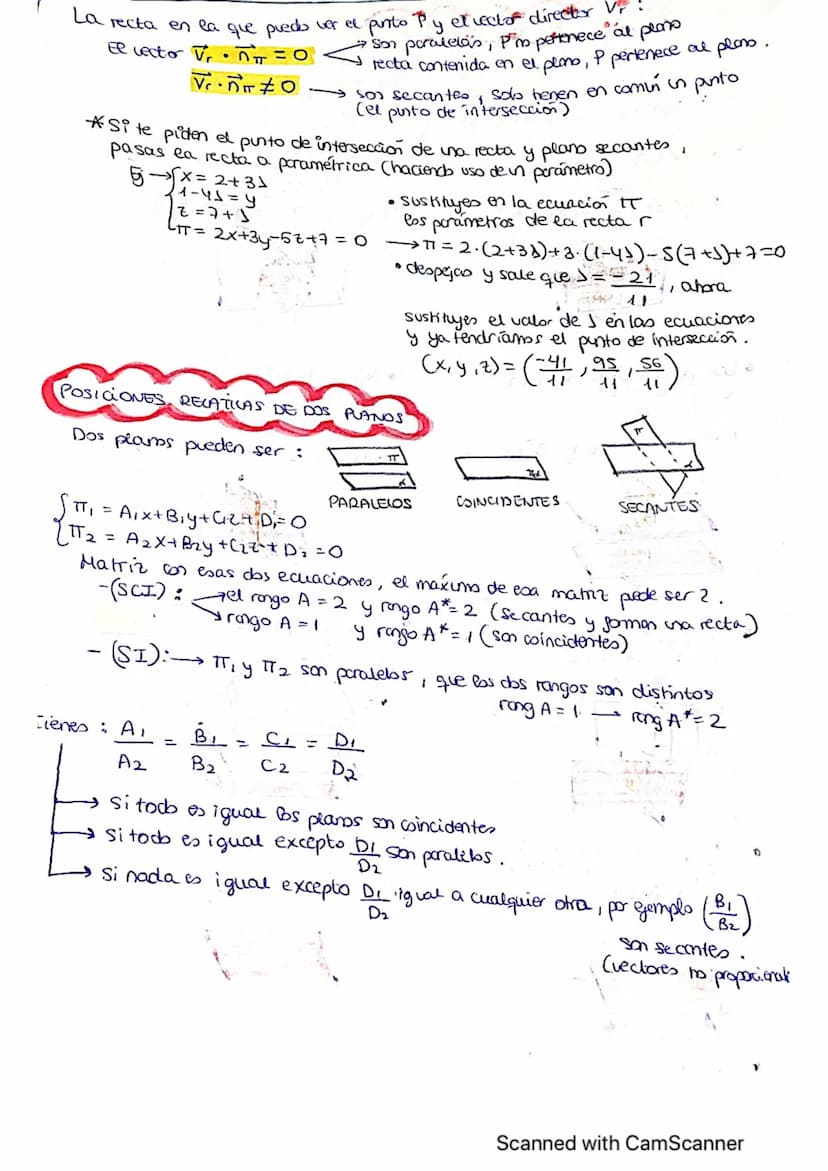 La recta en la que puedo ver el punto P y el vector director Vr :
El vector Vr · nπ = 0 → son paralelas, P no pertenece al plano
→ recta contenida en el plano, P pertenece al plano.
Vr · nπ ≠ 0 → son secantes, solo tienen en común un punto
(el punto de intersección)
*Si te piden el punto de intersección de una recta y plano secantes,
pasas la recta a paramétrica (haciendo uso de un parámetro)
Ej → x = 2+3λ
1-4λ = y
z = 7+λ
π = 2x+3y-5z+7 = 0
• sustituyes en la ecuación π
los parámetros de la recta r
→ π = 2·(2+3λ)+3·(1-4λ)-5(7+λ)+7=0
• despejas y sale que λ = -21/11, ahora
sustituyes el valor de λ en las ecuaciones
y ya tendríamos el punto de intersección.
(x, y, z) = (-41/11, 95/11, 56/11)
POSICIONES RELATIVAS DE DOS PLANOS
Dos planos pueden ser :
π
α
PARALELOS
COINCIDENTES
π
α
SECANTES
π1 = A1x+B1y+C1z+D1=0
π2 = A2x+B2y+C2z+D2=0
Matriz con esas dos ecuaciones, el máximo de esa matriz puede ser 2.
-(SCI): → el rango A = 2 y rango A*= 2 (secantes y forman una recta)
→ rango A = 1 y rango A* = 1 (son coincidentes)
- (SI): → π1 y π2 son paralelos, que los dos rangos son distintos
rang A = 1 → rang A* = 2
tienes : A1/A2 = B1/B2 = C1/C2 = D1/D2
→ Si todo es igual los planos son coincidentes
→ Si todo es igual excepto D1/D2 son paralelos.
→ Si nada es igual excepto D1/D2 igual a cualquier otra, por ejemplo (B1/B2)
son secantes.
(vectores no proporcional
Scanned with CamScanner